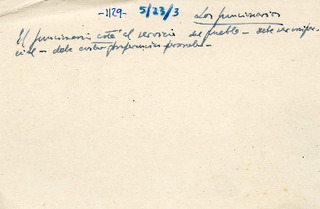 -1129- 5/23/3 Los funcionarios
El funcionario está al servicio del pueblo - debe ser imparcial
- debe evitar preferencias